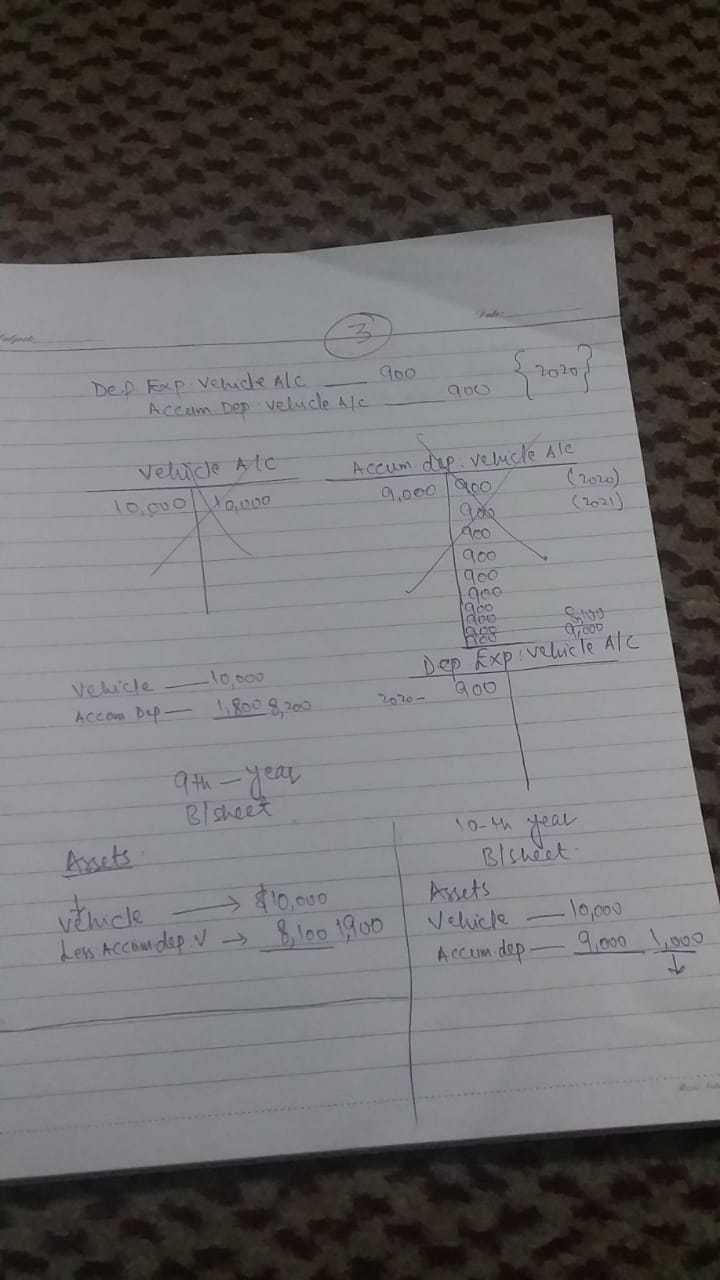 Subject:
Date:
3
Dep Exp. Vehicle A/C — 900
Accum Dep. Vehicle A/C — 900
{2020}
Vehicle A/C
10,000 10,000
Accum dep. vehicle A/C
9,000 900 (2020)
900 (2021)
900
900
900
900
900
900
900 8,100
900 9,000
Dep Exp. vehicle A/C
2020- 900
Vehicle — 10,000
Accum Dep — 1,800 8,200
9th - year
B/sheet
Assets
Vehicle → $10,000
Less Accum dep. V → 8,100 1,900
10-th year
B/sheet
Assets
Vehicle — 10,000
Accum. dep — 9,000 1,000